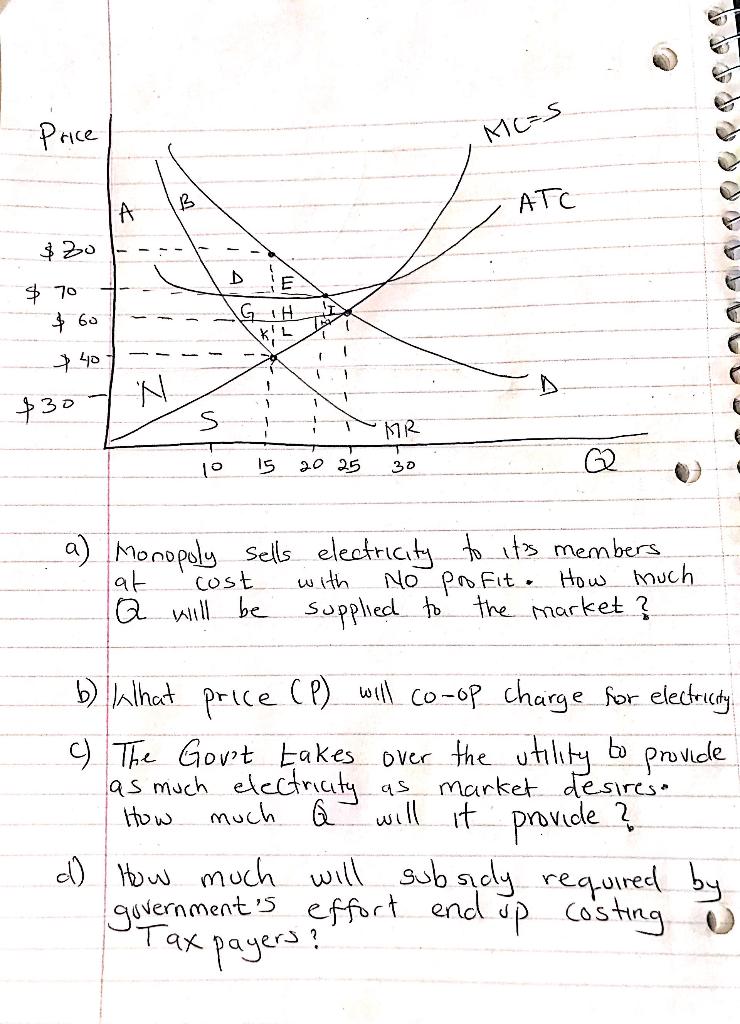 Price
MC=S
ATC
A
B
$80
D
E
$70
G
H
I
$60
K
L
M
$40
N
$30
D
S
MR
10 15 20 25 30
Q
a) Monopoly sells electricity to it's members
at cost with NO profit. How much
Q will be supplied to the market?
b) What price (P) will co-op charge for electricity
c) The Gov't takes over the utility to provide
as much electricity as market desires.
How much Q will it provide?
d) How much will subsidy required by
government's effort end up costing
Tax payers?